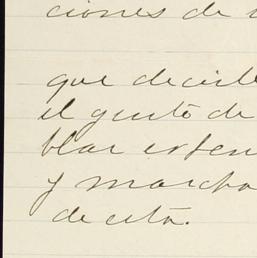 ciones de
que decirle
el gusto de
blar exten
y marcha
de esta.